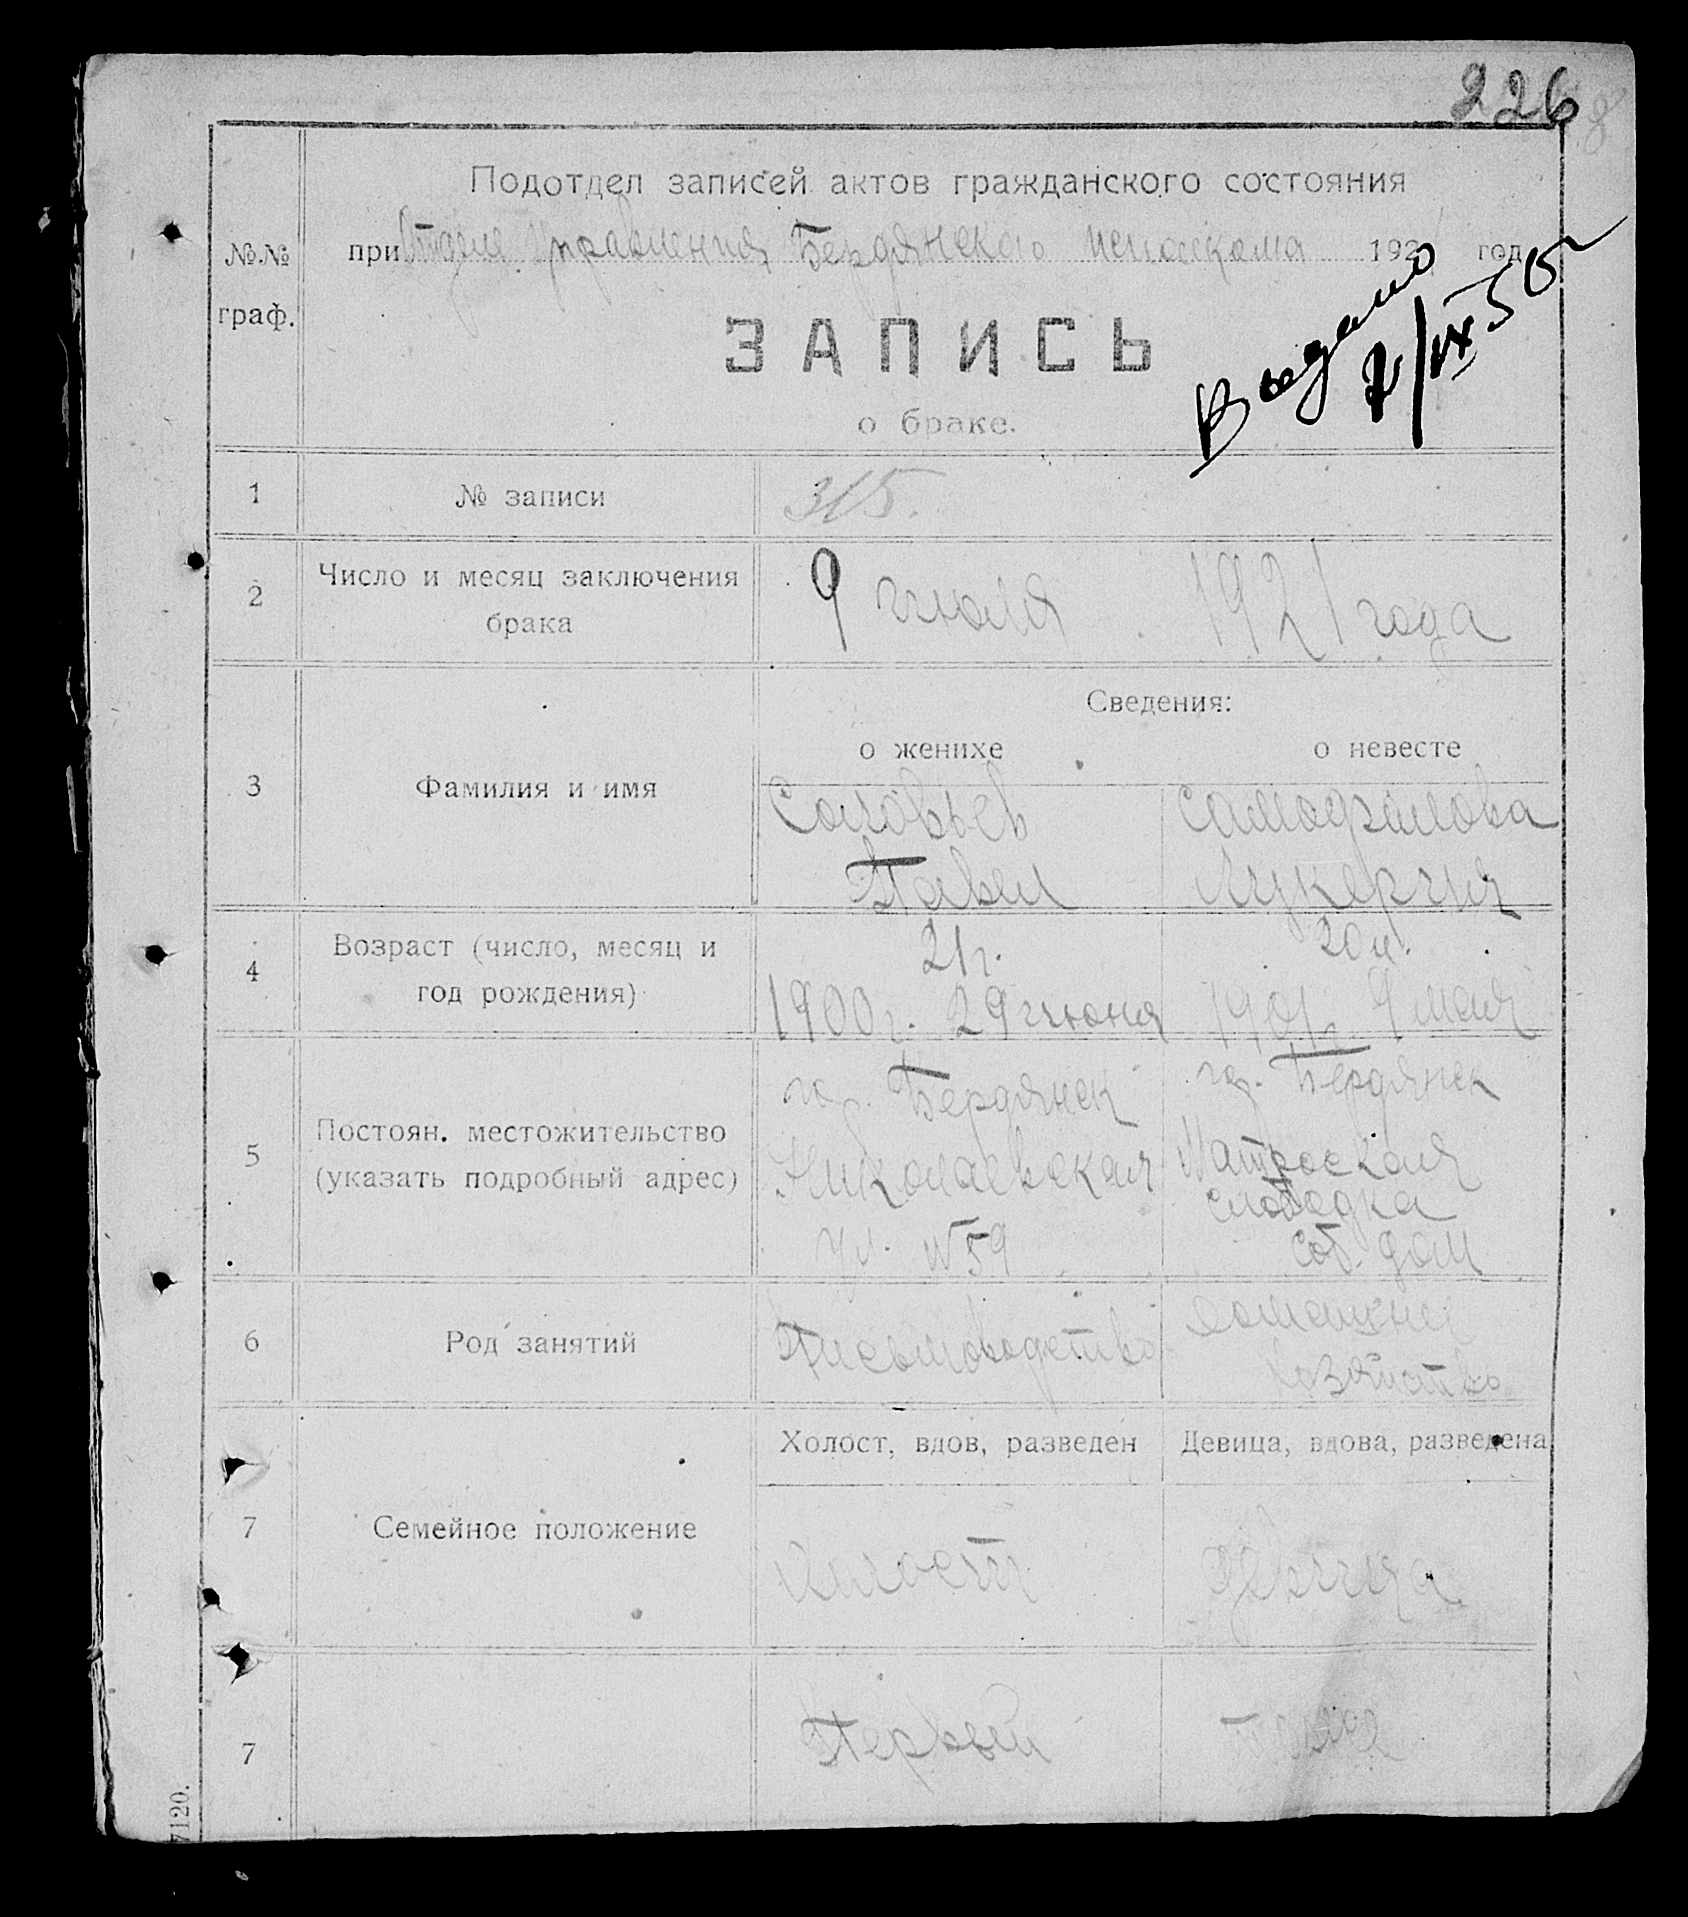 226
Подотдел записей актов гражданского состояния
при Отделе Управления Бердянского исполкома 1921 год
№№ граф.
ЗАПИСЬ
о браке.
Выдано
2/IX 50
1 № записи 315.
2 Число и месяц заключения брака
9 июля 1921 года
Сведения:
о женихе о невесте
3 Фамилия и имя
Соловьев Самофалова
Павел Лукерия
4 Возраст (число, месяц и год рождения)
21 г. 20 л.
1900 г. 29 июня 1901 г. 9 мая
5 Постоян. местожительство (указать подробный адрес)
го. Бердянск го. Бердянск
Николаевская Матроская
слободка
ул. № 59 соб. дом
6 Род занятий
Письмоводство Домашнее
хозяйство
Холост, вдов, разведен Девица, вдова, разведена
7 Семейное положение
Холост Девица
7 Первый
7120.